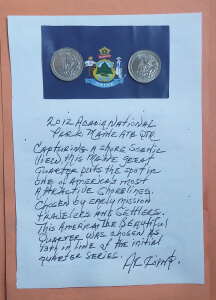 MAINE
2012 ACADIA NATIONAL
PARK MAINE ATB QTR
CAPTURING A SHORE SCENIC
VIEW, THIS MAINE GREAT
QUARTER PUTS THE SPOT IN
ONE OF AMERICA'S MOST
ATTRACTIVE SHORELINES.
CHOSEN BY EARLY MISSION
TRAVELERS AND SETTLERS.
THIS AMERICA THE BEAUTIFUL
QUARTER WAS CHOSEN AS
13TH IN LINE OF THE INITIAL
QUARTER SERIES.